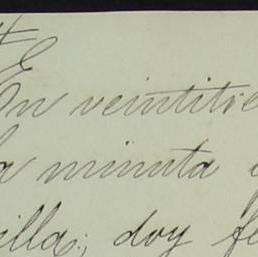 En veintitre
la minuta
illa; doy fe